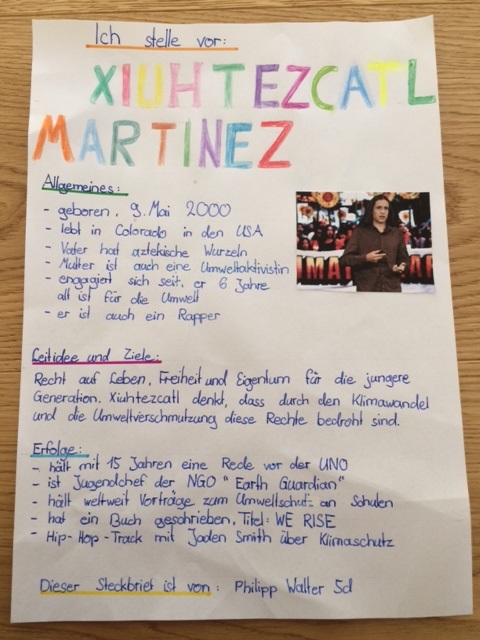 Ich stelle vor:
XIUHTEZCATL
MARTINEZ
Allgemeines:
- geboren, 9. Mai 2000
- lebt in Colorado in den USA
- Vater hat aztekische Wurzeln
- Mutter ist auch eine Umweltaktivistin
- engagiert sich seit, er 6 Jahre
alt ist für die Umwelt
- er ist auch ein Rapper
Leitidee und Ziele:
Recht auf Leben, Freiheit und Eigentum für die jüngere
Generation. Xiuhtezcatl denkt, dass durch den Klimawandel
und die Umweltverschmutzung diese Rechte bedroht sind.
Erfolge:
- hält mit 15 Jahren eine Rede vor der UNO
- ist Jugendchef der NGO "Earth Guardian"
- hält weltweit Vorträge zum Umweltschutz an Schulen
- hat ein Buch geschrieben, Titel: WE RISE
- Hip-Hop-Track mit Jaden Smith über Klimaschutz
Dieser Steckbrief ist von: Philipp Walter 5d